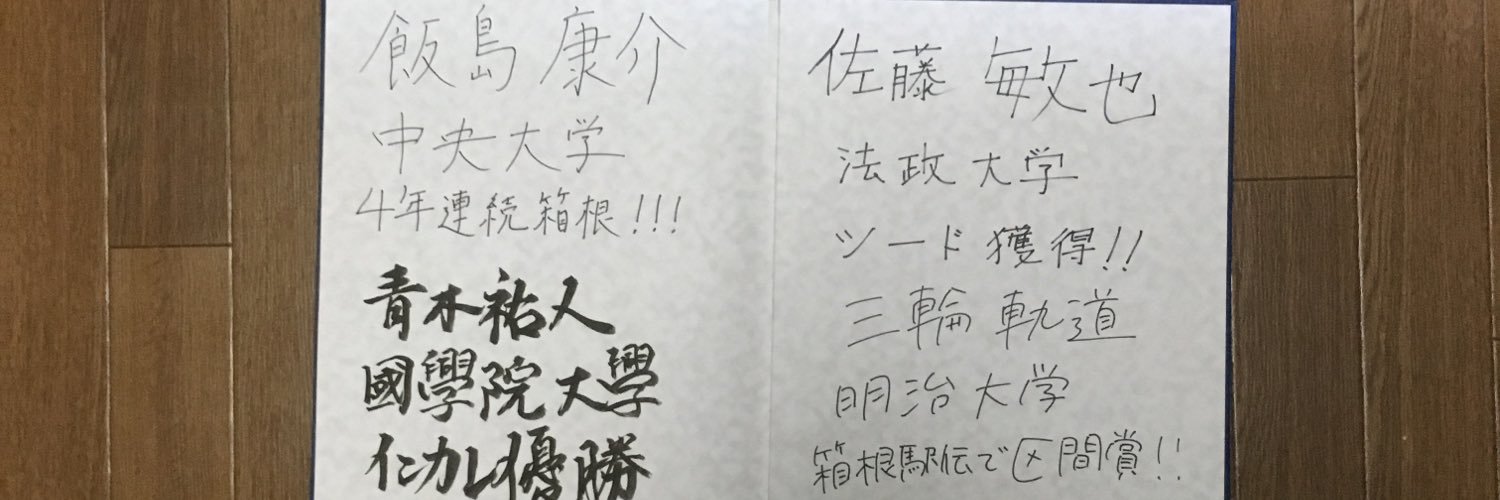 飯島 康介
中央大学
4年連続箱根!!!
青木祐人
國學院大學
仁カレ優勝
佐藤 敏也
法政大学
シード獲得!!
三輪 軌道
明治大学
箱根駅伝で区間賞!!